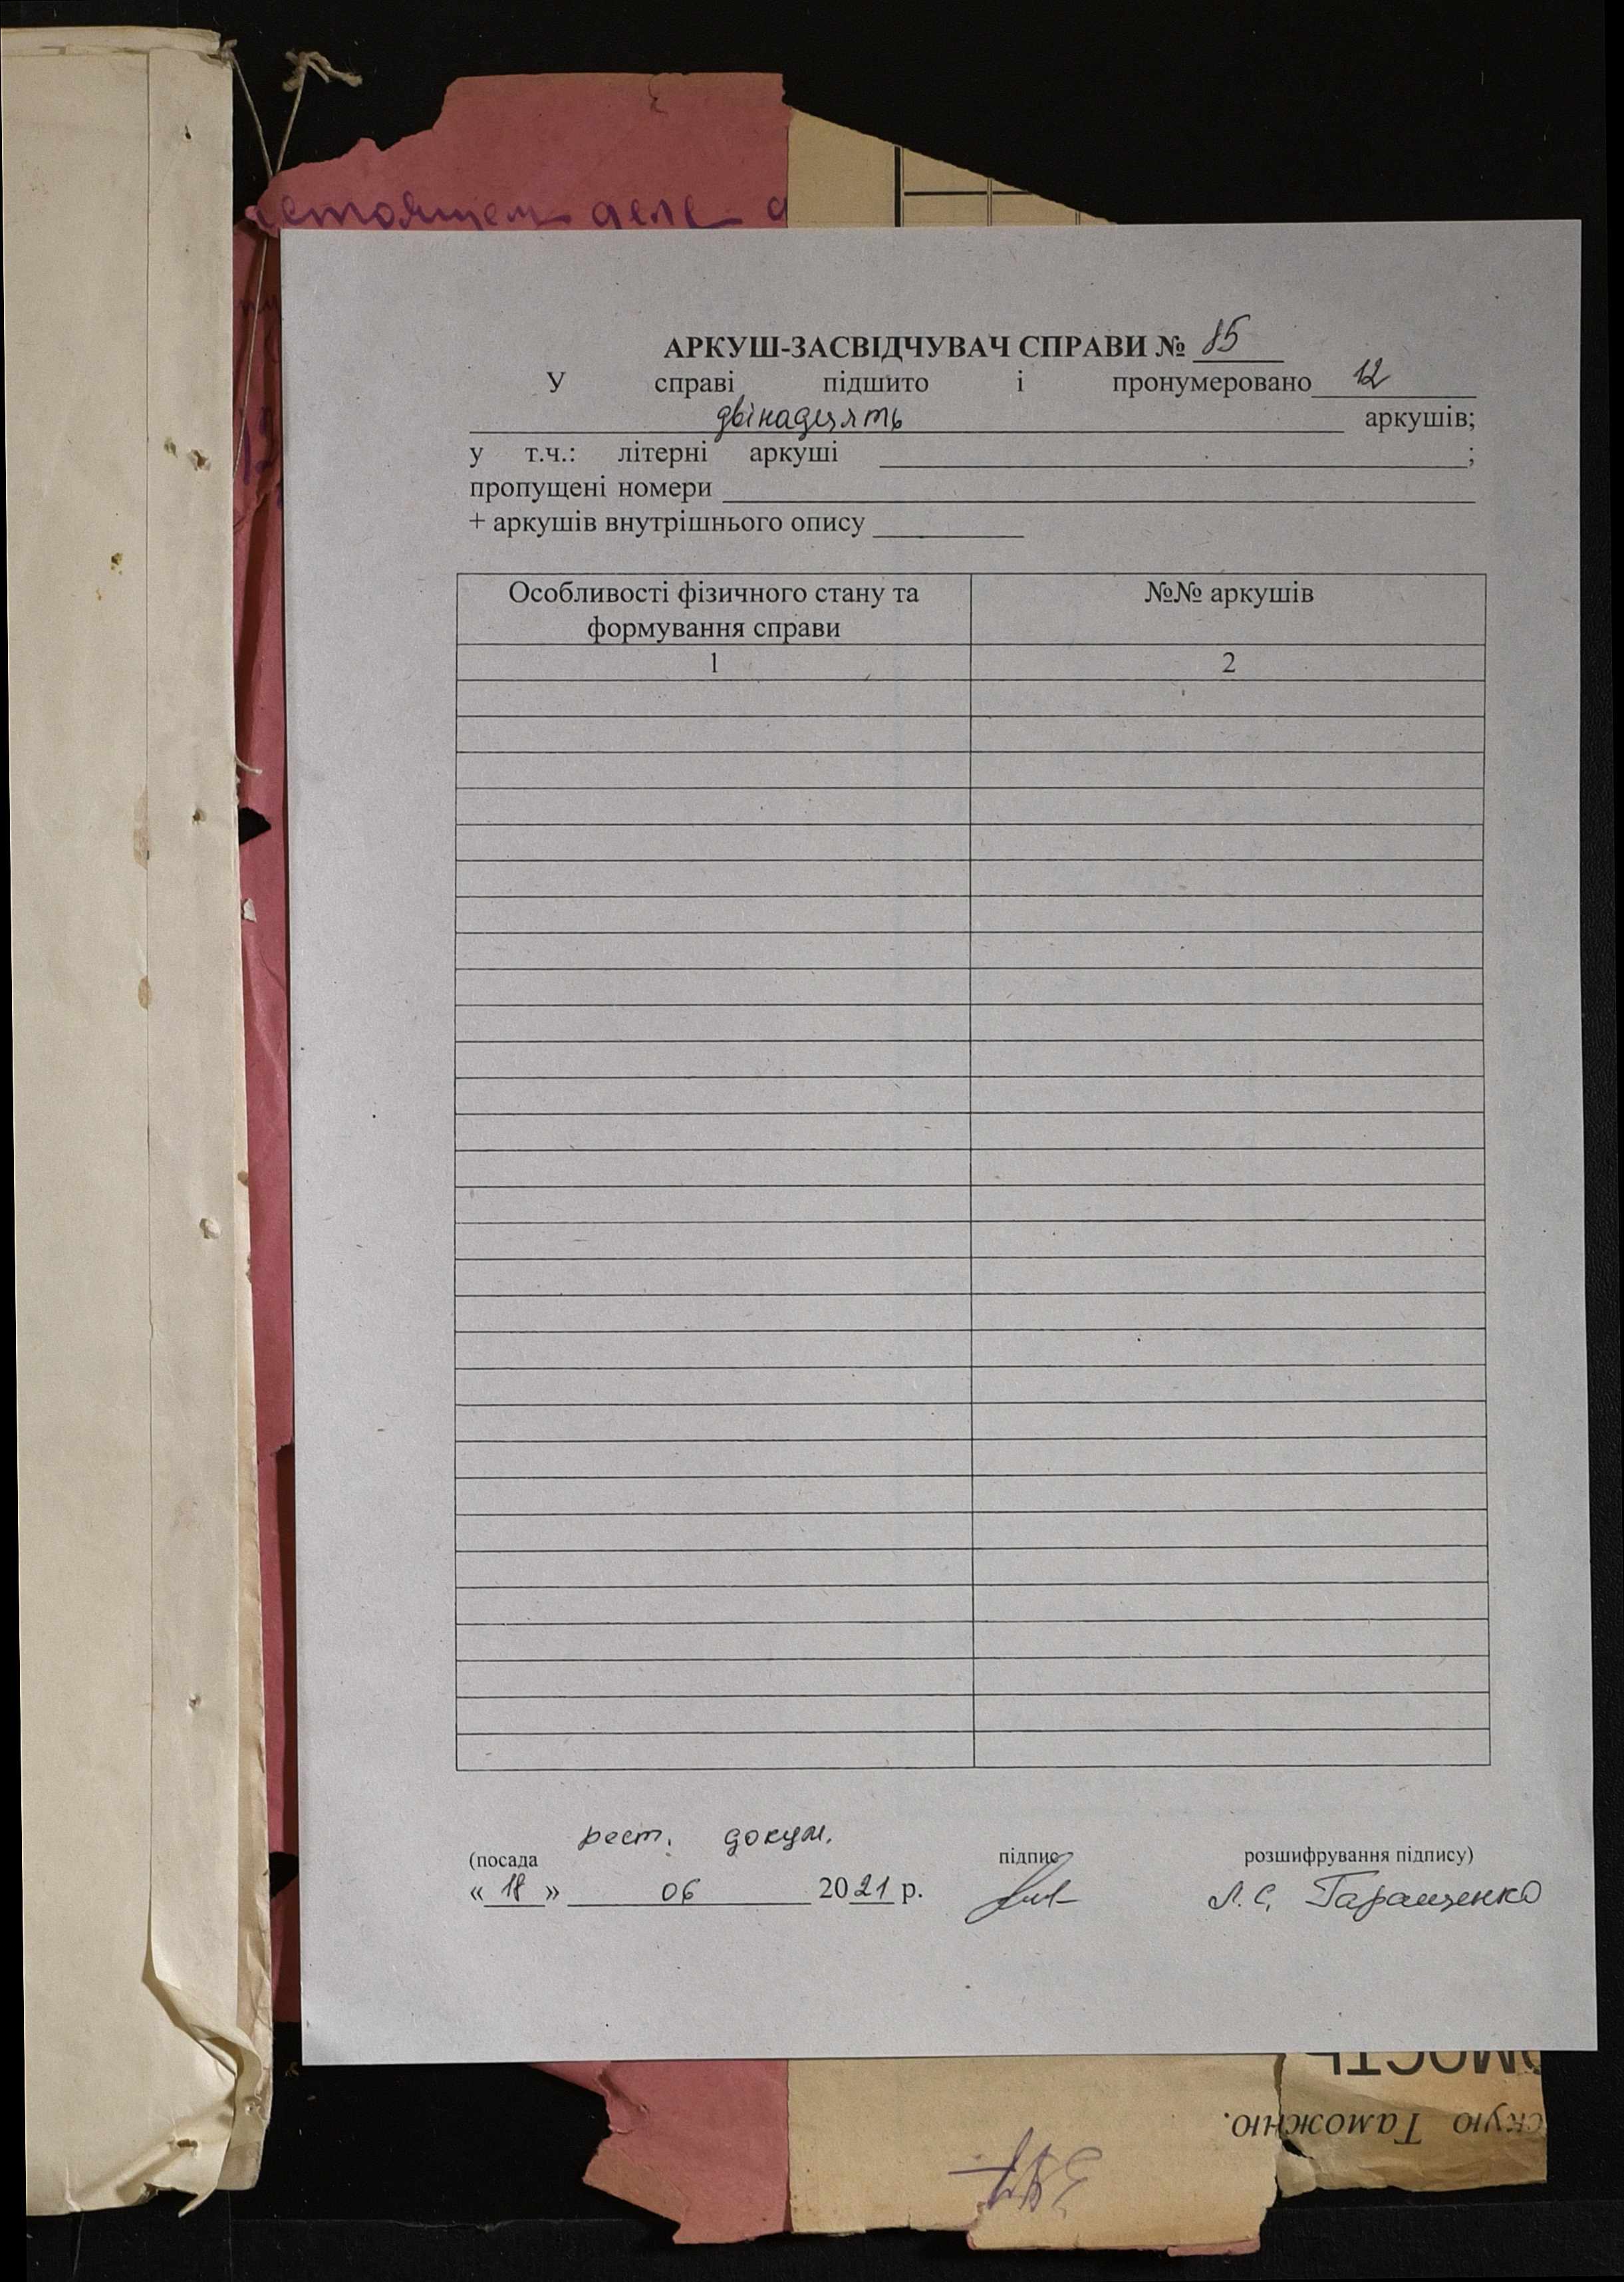 стоящем деле
АРКУШ-ЗАСВІДЧУВАЧ СПРАВИ № 85
У справі підшито і пронумеровано 12
двінадцять аркушів;
у т.ч.: літерні аркуші ;
пропущені номери
+ аркушів внутрішнього опису
Особливості фізичного стану та формування справи
№№ аркушів
1 2
рест. докум.
(посада підпис розшифрування підпису)
« 18 » 06 2021 р. Л. С. Таращенко
ОМОСТЬ
скую Таможню.